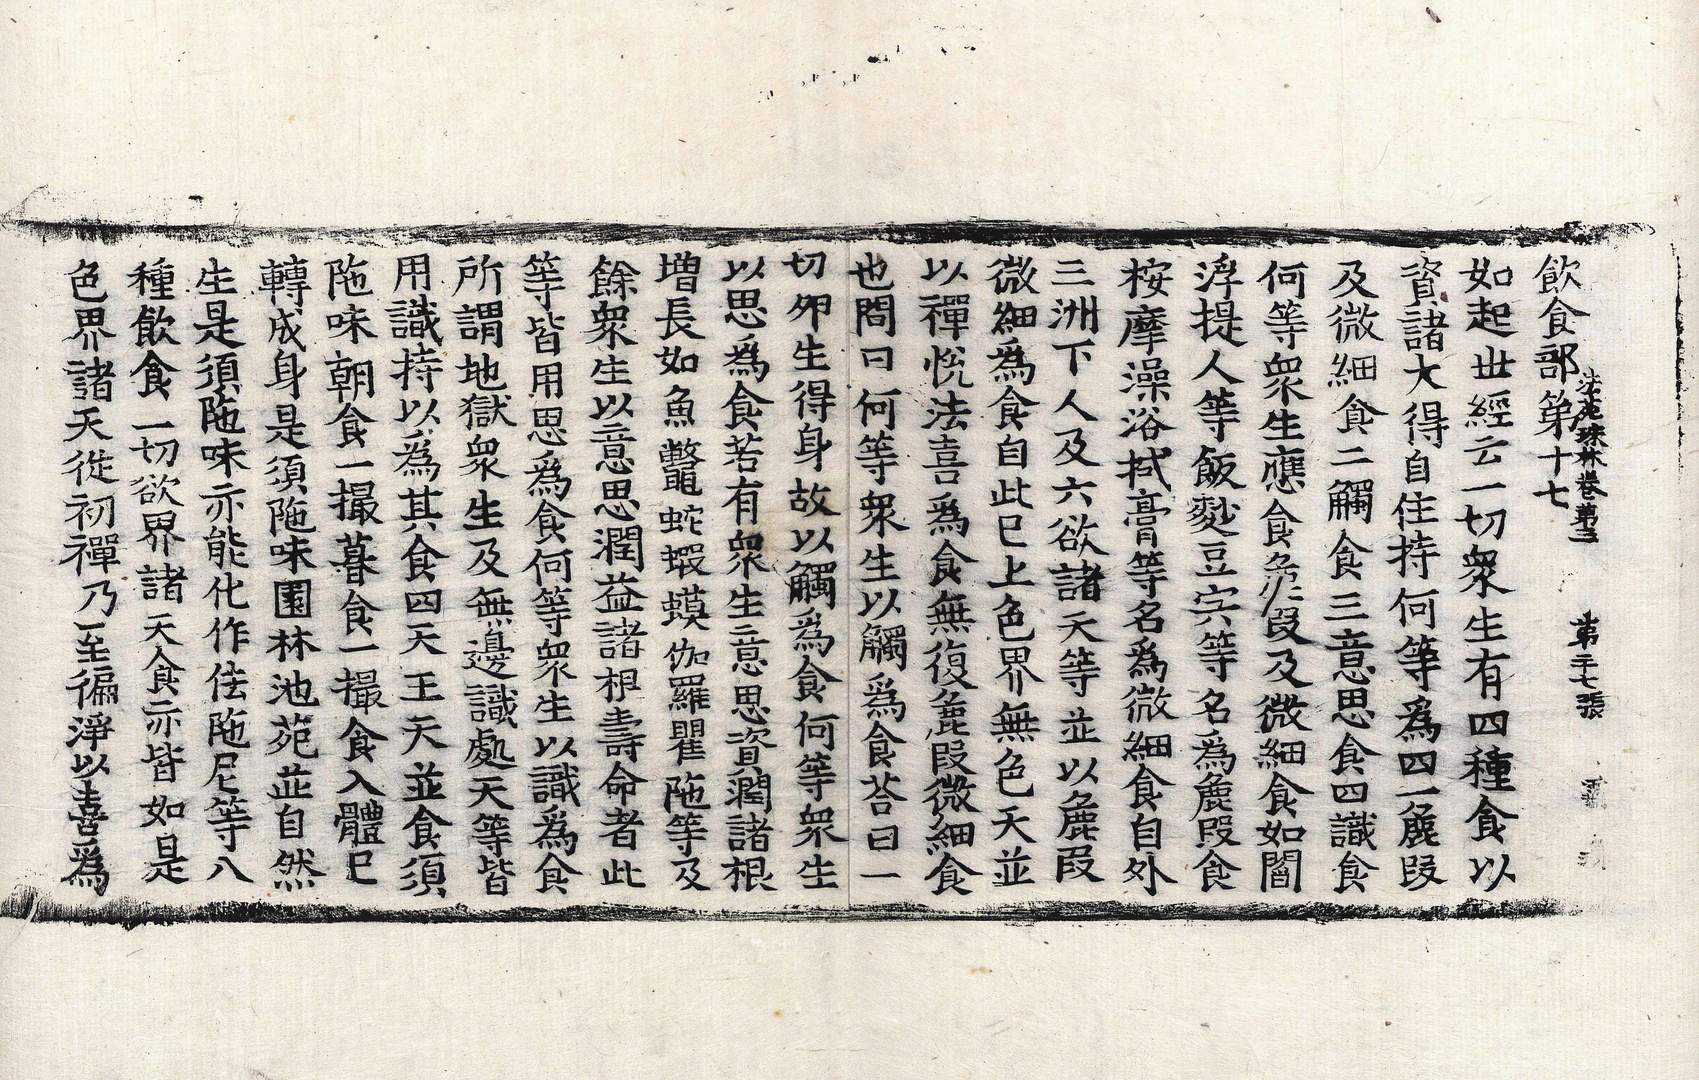 法苑珠林卷第三　第三十七張
飲食部第十七
如起世經云一切衆生有四種食以
資諸大得自住持何等爲四一麁段
及微細食二觸食三意思食四識食
何等衆生應食麁段及微細食如閻
浮提人等飯麨豆宍等名爲麁段食
桉摩澡浴拭膏等名爲微細食自外
三洲下人及六欲諸天等並以麁段
微細爲食自此已上色界無色天並
以禪悅法喜爲食無復麁段微細食
也問曰何等衆生以觸爲食荅曰一
切卵生得身故以觸爲食何等衆生
以思爲食若有衆生意思資潤諸根
增長如魚鼈蛇蝦蟆伽羅瞿陁等及
餘衆生以意思潤益諸根壽命者此
等皆用思爲食何等衆生以識爲食
所謂地獄衆生及無邊識處天等皆
用識持以爲其食四天王天並食須
陁味朝食一撮暮食一撮食入體已
轉成身是須陁味園林池苑並自然
生是須陁味亦能化作佉陁尼等八
種飲食一切欲界諸天食亦皆如是
色界諸天從初禪乃至徧淨以喜爲